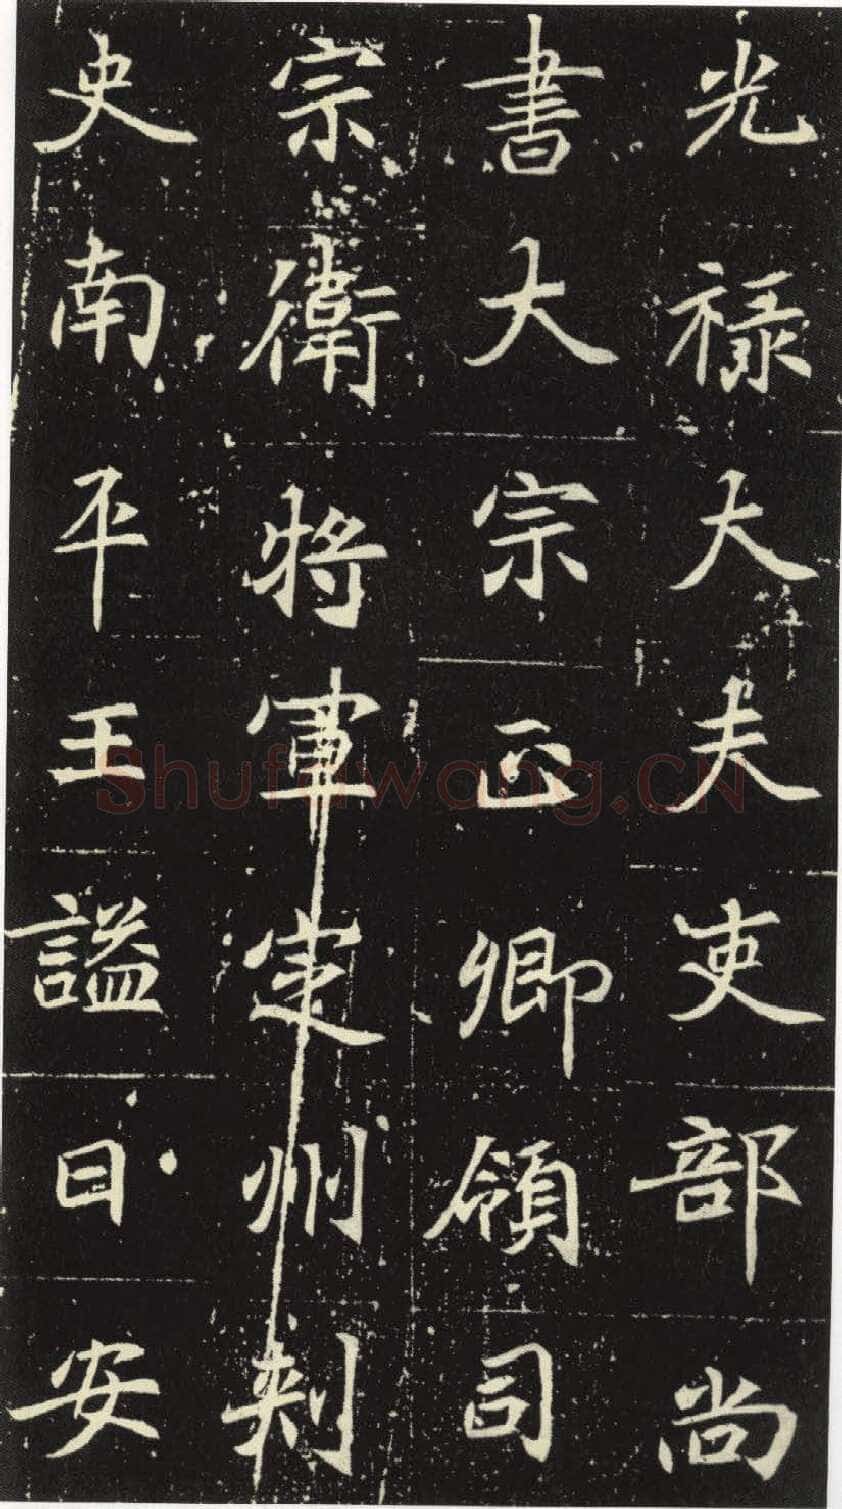 光禄大夫吏部尚
書大宗正卿領司
宗衛将軍定州刺
史南平王謚曰安
Shufawang.CN